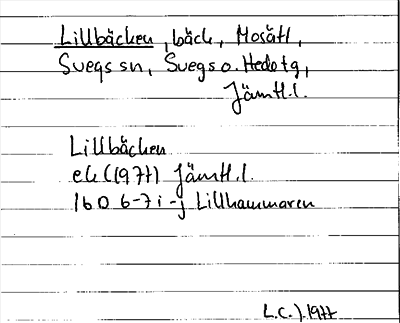 Lillbäcken, bäck, Mosätt,
Svegs sn, Svegs o. Hede tg,
Jämtl.l.
Lillbäcken
ek (1977) Jämtl.l.
16D 6-7i-j Lillhammaren
L.C.J. 1977